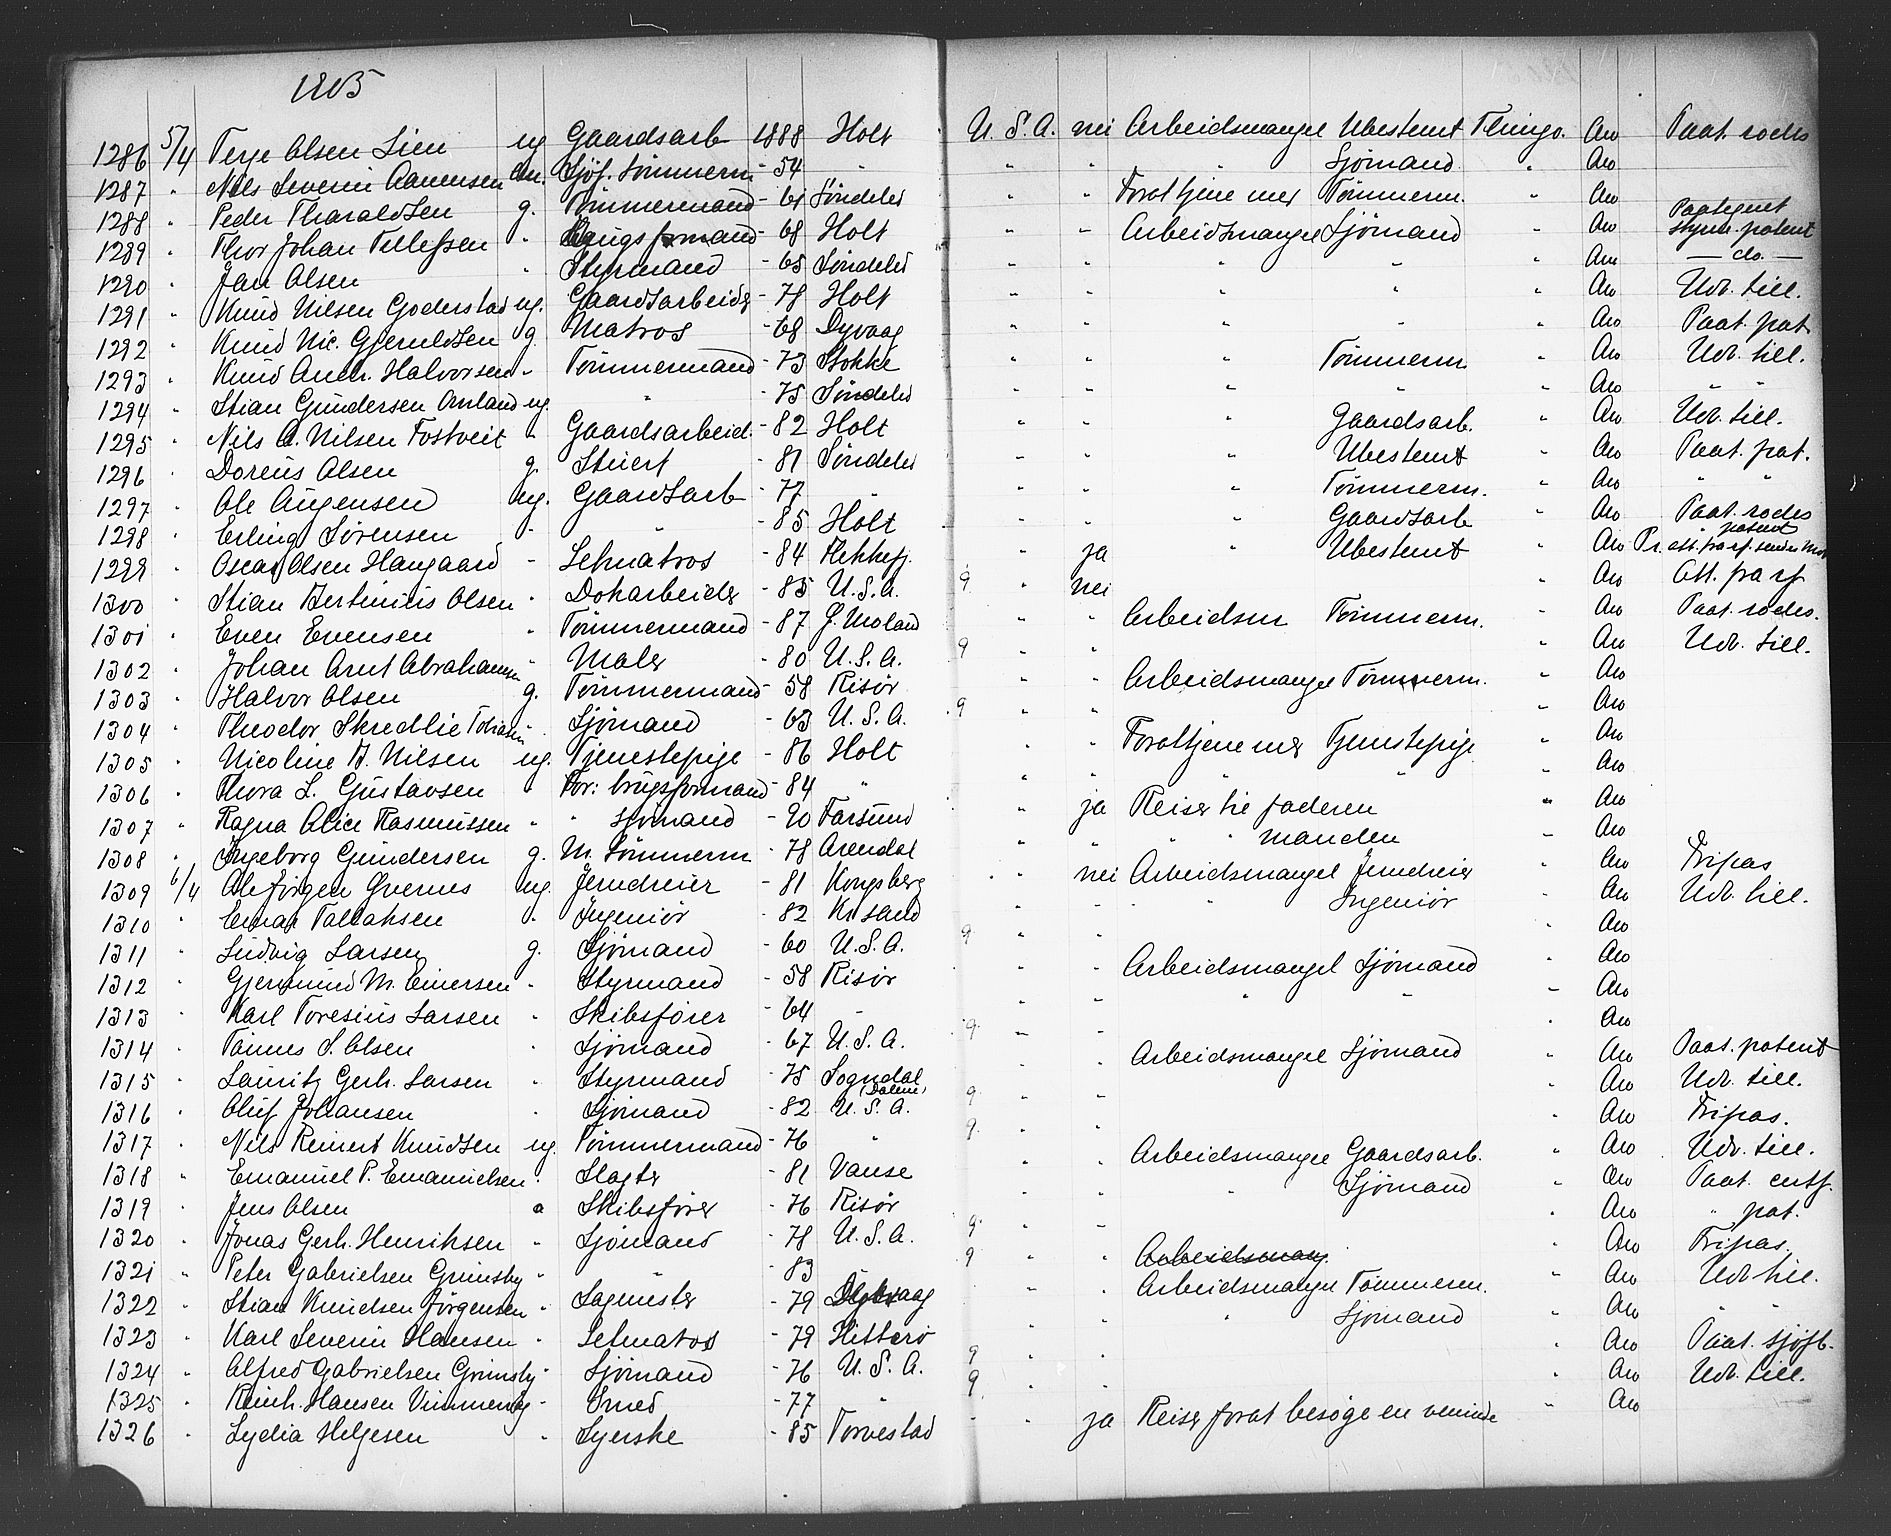 1905
1286 5/4 Terje Olsen Lien ug Gaardsarb 1888 Holt U. S. A. nei Arbeidsmangel Ubestemt Thingv. Aro Paat. rodes
1287 " Nils Severin Aanensen Enm. Sjöf. Tömmerm - 54 " " " " Sjömand " Aro
1288 " Peder Tharaldsen g. Tömmermand - 61 Söndeled " " Forat tjene mer Tömmerm. " Aro
1289 " Thor Johan Tellefsen " formand - 68 Holt " " Arbeidsmangel Sjömand " Aro Paategnet styrm. patent
1290 " Jan Olsen " Styrmand - 65 Söndeled " " " " " Aro — do. —
1291 " Knud Nilsen Goderstad ug. Gaardsarbeider - 78 Holt " " " " " Aro Udv. till.
1292 " Knud Nic. Gjeruldsen g. Matros - 68 Dyvaag " " " " " Aro Paat. pat
1293 " Knud Andr. Halvorsen " Tömmermand - 73 Stokke " " " Tömmerm " Aro Udv. till.
1294 " Stian Gundersen Omland ug. " - 75 Söndeled " " " " " Aro " "
1295 " Nils A. Nilsen Fostveit " Gaardsarbeid. - 82 Holt " " " Gaardsarb. " Aro Udv. till.
1296 " Doreus Olsen g. Stuert - 81 Söndeled " " " Ubestemt " Aro Paat. pat.
1297 " Ole Augensen ug. Gaardsarb - 77 " " " " Tömmerm. " Aro " "
1298 " Erling Sörensen " " - 85 Holt " " " Gaardsarb " Aro Paat. rodes
1299 " Oscar Olsen Haugaard - Letmatros - 84 Flekkefj. " ja " Ubestemt " Aro Pr. att. paaf. patent
1300 " Stian Bertinius Olsen " Dokarbeider - 85 U. S. A. 9 " nei " Aro Att. paaf
1301 " Even Evensen " Tömmermand - 87 Ö. Moland " " Arbeidsm Tömmerm. " Aro Paat. rodes.
1302 " Johan Arnt Abrahamsen " Maler - 80 U. S. A. 9 " " " Aro Udv. till.
1303 " Halvor Olsen g. Tömmermand - 58 Risör " " Arbeidsmangel Tömmerm. " Aro
1304 " Theodor Skredlie Tobiasen " Sjömand - 63 U. S. A. 9 " " " Aro
1305 " Nicoline B. Nilsen ug. Tjenestepige - 86 Holt " " Forat tjene mer Tjenstepige " Aro
1306 " Thora L. Gustavsen " For: brugsformand - 84 " " " " " " Aro
1307 " Ragna Alice Rasmussen " " sjömand - 90 Farsund " ja Reiser til faderen " Aro
1308 " Ingeborg Gundersen g. M. Tömmerm - 78 Arendal " " " " manden " Aro
1309 6/4 Ole Jörgen Qvernes ug. Jerndreier - 81 Kongsberg " nei Arbeidsmangel Jerndreier " Aro Fripas
1310 " Einar Tallaksen " Ingeniör - 82 Kr.sand " " " Ingeniör " Aro Udv. till.
1311 " Ludvig Larsen g. Sjömand - 60 U. S. A. 9 " " " Aro
1312 " Gjermund M. Einersen " Styrmand - 58 Risör " " Arbeidsmangel Sjömand " Aro
1313 " Karl Toresius Larsen " Skibsförer - 64 - " " " " " Aro
1314 " Tönnes S. Olsen " Sjömand - 67 U. S. A. 9 " " " Aro
1315 " Lauritz Gerh. Larsen " Styrmand - 75 Sogndal (Dalene) " " Arbeidsmangel Sjömand " Aro Paat. patent
1316 " Oluf Johansen " Sjömand - 82 U. S. A. 9 " " " Aro Udv. till.
1317 " Nils Reinert Knudsen ug. Tömmermand - 76 " 9 " " " Aro Fripas.
1318 " Emanuel P. Emanuelsen " Slagter - 81 Vanse " " Arbeidsmangel Gaardsarb. " Aro Udv. till.
1319 " Jens Olsen " Skibsförer - 76 Risör " " " Sjömand " Aro Paat. certf.
1320 " Jonas Gerh. Henriksen " Sjömand - 78 U. S. A. 9 " " " Aro " pat.
1321 " Peter Gabrielsen Grimsby " " - 83 9 " " Arbeidsmang. " Aro Fripas.
1322 " Stian Knudsen Jörgensen " Sagmester - 79 Dybvaag " " Arbeidsmangel Tömmerm. " Aro Udv till.
1323 " Karl Severin Hansen " Letmatros - 79 Hitterö " " " Sjömand " Aro " "
1324 " Alfred Gabrielsen Grimsby " Sjömand - 76 U. S. A. 9 " " " Aro Paat. sjöfb.
1325 " Reinh. Hansen " Smed - 77 " 9 " " " Aro Udv. till.
1326 " Lydia Helgesen " Syerske - 85 Torvestad " ja Reiser forat besöge en veninde " Aro